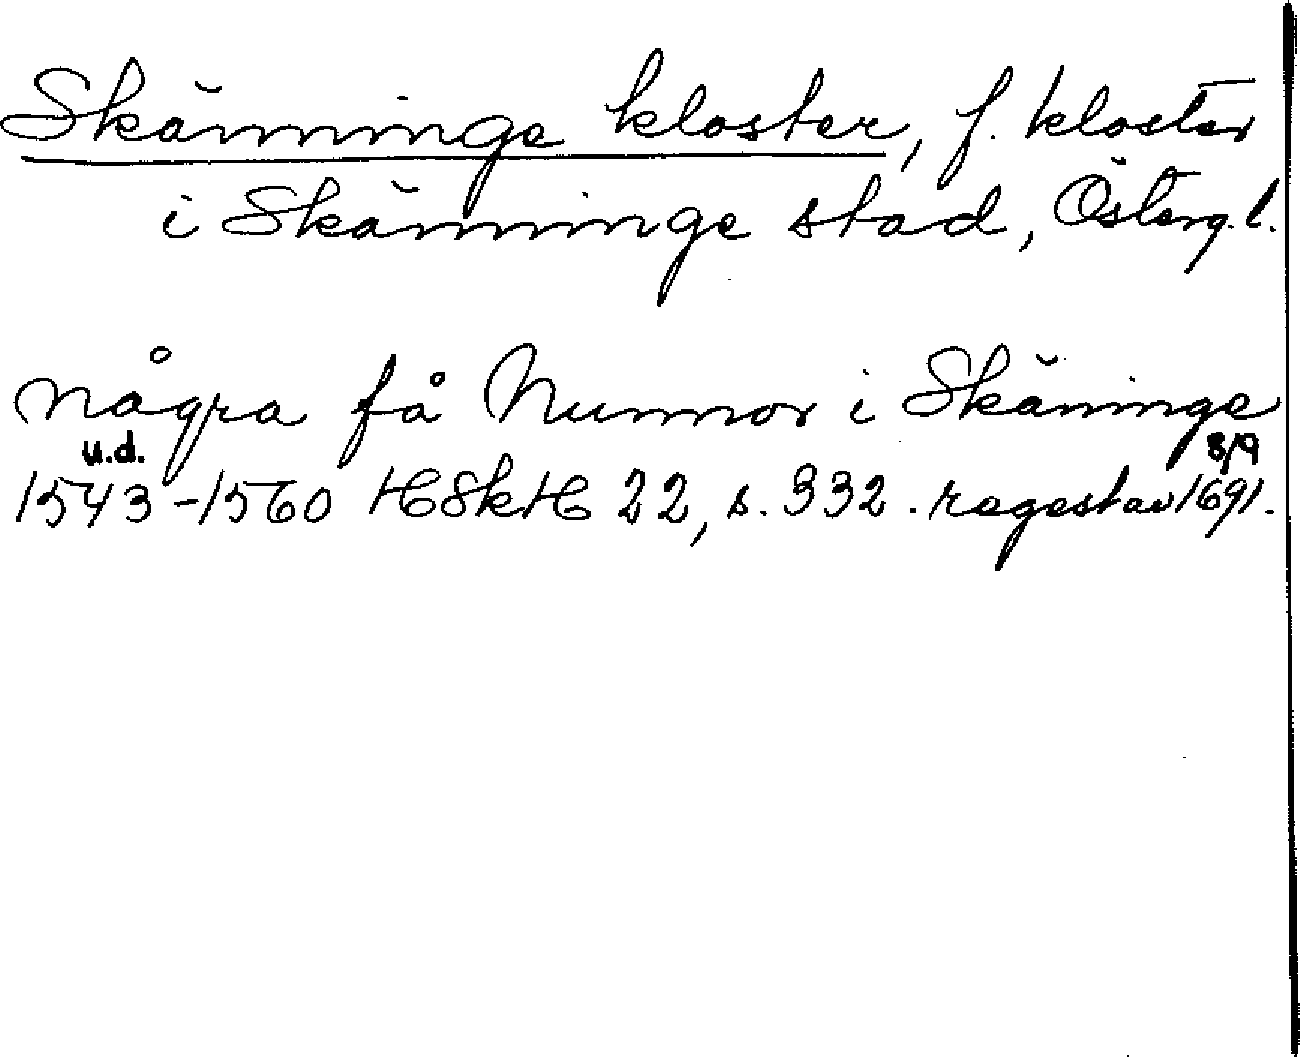 Skänninge kloster, f. kloster
i Skänninge stad, Österg. l.
några få Nunnor i Skäninge
u.d. 8/9
1543-1560 HSkH 22, s. 332. regest av 1691.